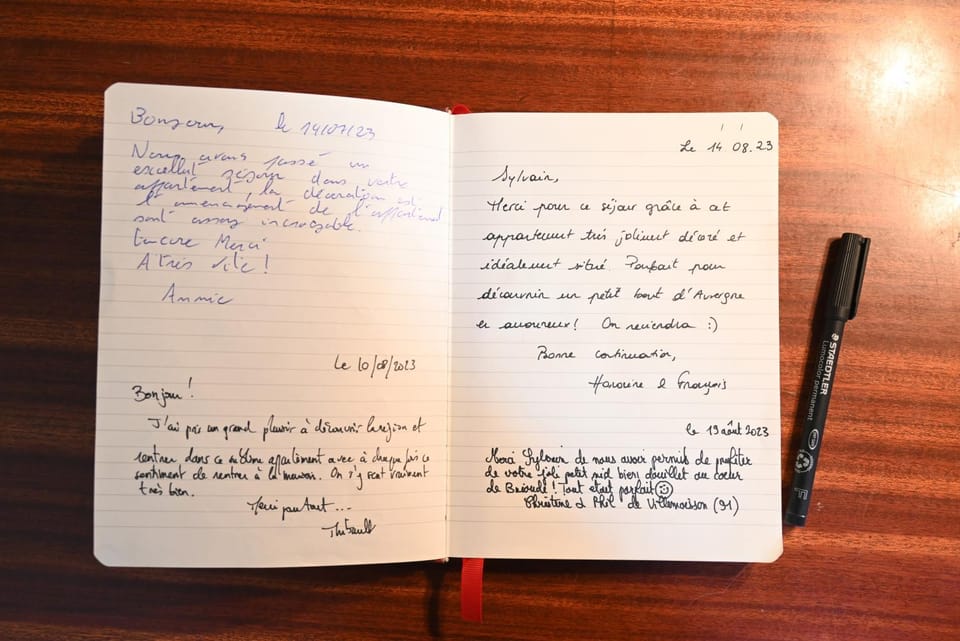 Bonjour, le 14/07/23
Nous avons passé un
excellent séjour dans votre
appartement, la décoration et
l'amenagement de l'appartement
sont assez incroyable.
Encore Merci
A très vite !
Annie
Le 10/08/2023
Bonjour !
J'ai pris un grand plaisir à découvrir la région et
rentrer dans ce sublime apartement avec à chaque fois ce
sentiment de rentrer à la maison. On s'y sent vraiment
très bien.
Merci pour tout...
Thibault
Le 14 08.23
Sylvain,
Merci pour ce séjour grâce à cet
appartement très joliment décoré et
idéalement situé. Parfait pour
découvrir un petit bout d'Auvergne
en amoureux ! On reviendra :)
Bonne continuation,
Honorine & François
le 19 août 2023
Merci Sylvain de nous avoir permis de profiter
de votre joli petit nid bien douillet au coeur
de Brioude ! Tout etait parfait
Christine & Phil de Villemoisson (91)
STAEDTLER
Lumocolor permanent
F